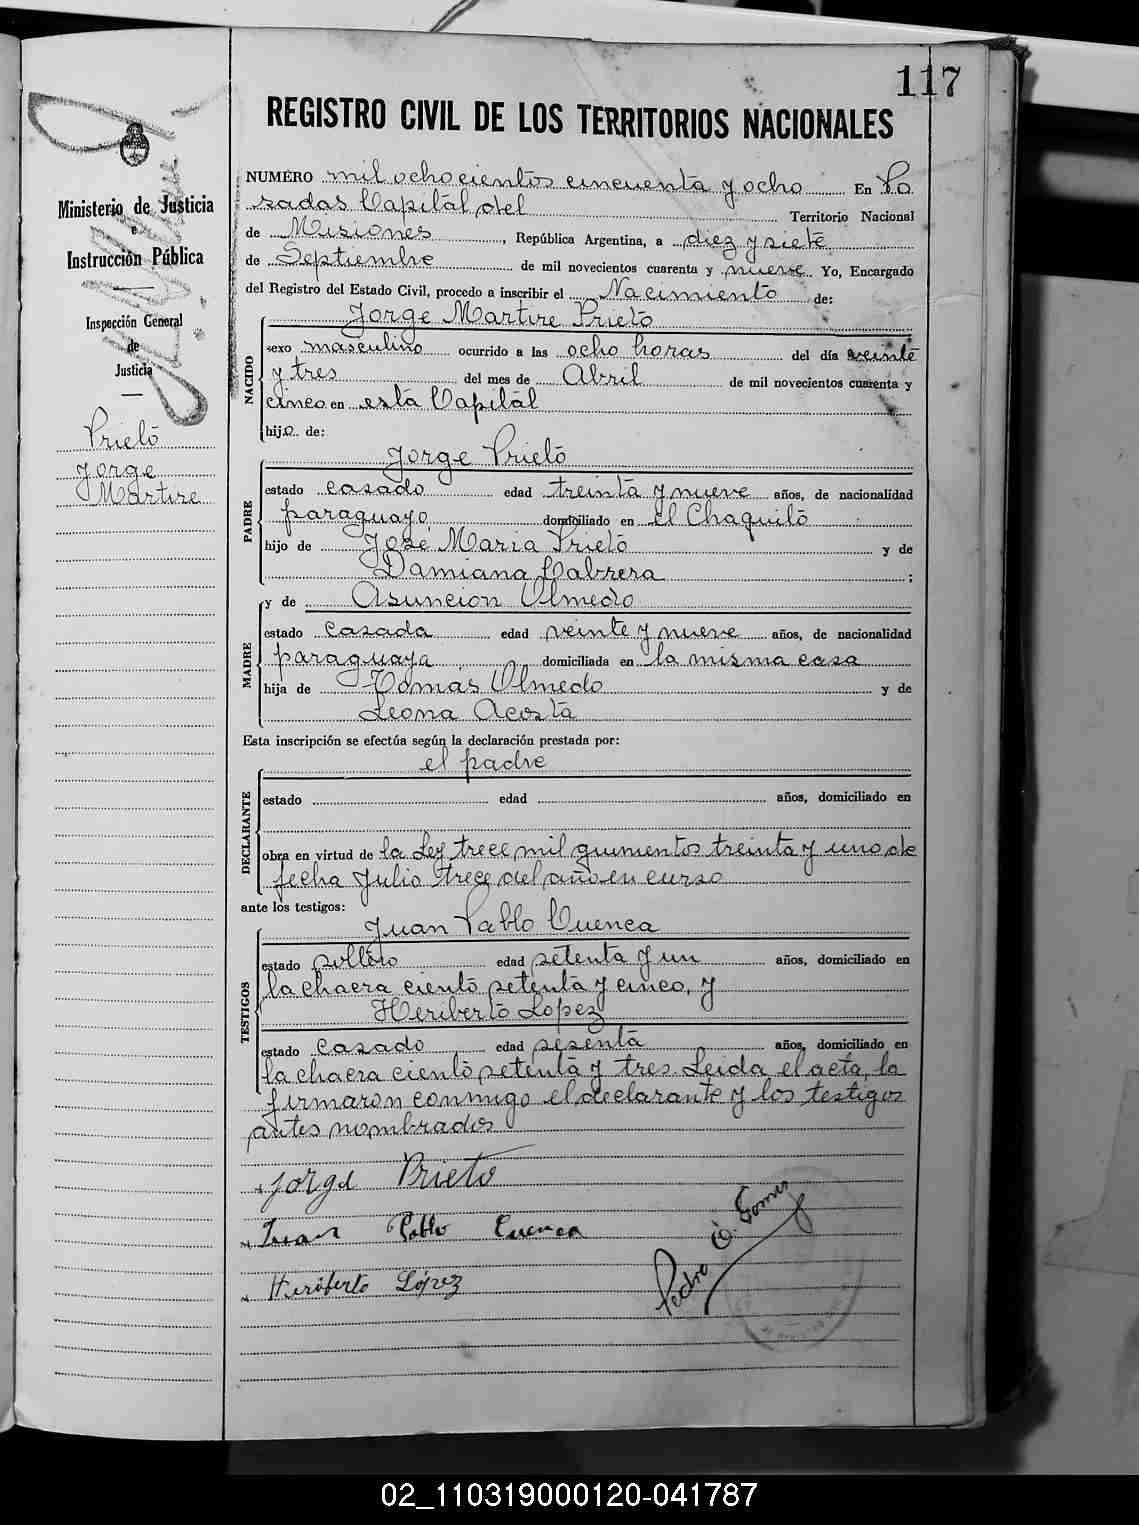 117
REGISTRO CIVIL DE LOS TERRITORIOS NACIONALES
NUMERO mil ochocientos cincuenta y ocho En Po
sadas Capital del Territorio Nacional
de Misiones, República Argentina, a diez y siete
de Septiembre de mil novecientos cuarenta y nueve Yo, Encargado
del Registro del Estado Civil, procedo a inscribir el Nacimiento de:
Jorge Martire Prieto
NACIDO
sexo masculino ocurrido a las ocho horas del día veinte
y tres del mes de Abril de mil novecientos cuarenta y
cinco en esta Capital
hijo de:
Jorge Prieto
PADRE
estado casado edad treinta y nueve años, de nacionalidad
paraguayo domiciliado en el Chaquito
hijo de José Maria Prieto y de
Damiana Cabrera;
y de Asuncion Olmedo
MADRE
estado casada edad veinte y nueve años, de nacionalidad
paraguaya domiciliada en la misma casa
hija de Tomas Olmedo y de
Leona Acosta
Esta inscripción se efectúa según la declaración prestada por:
el padre
DECLARANTE
estado edad años, domiciliado en
obra en virtud de la Ley trece mil quinientos treinta y uno de
fecha Julio trece del año en curso
ante los testigos:
Juan Pablo Cuenca
TESTIGOS
estado soltero edad setenta y un años, domiciliado en
la chacra ciento setenta y cinco, y
Heriberto Lopez
estado casado edad sesenta años, domiciliado en
la chacra ciento setenta y tres. Leida el acta, la
firmaron conmigo el declarante y los testigos
antes nombrados
Jorge Prieto
Juan Pablo Cuenca
Heriberto López
Pedro O. Gomez
Ministerio de Justicia
e
Instrucción Pública
Inspección General
de
Justicia
Prieto
Jorge
Martire
02_110319000120-041787